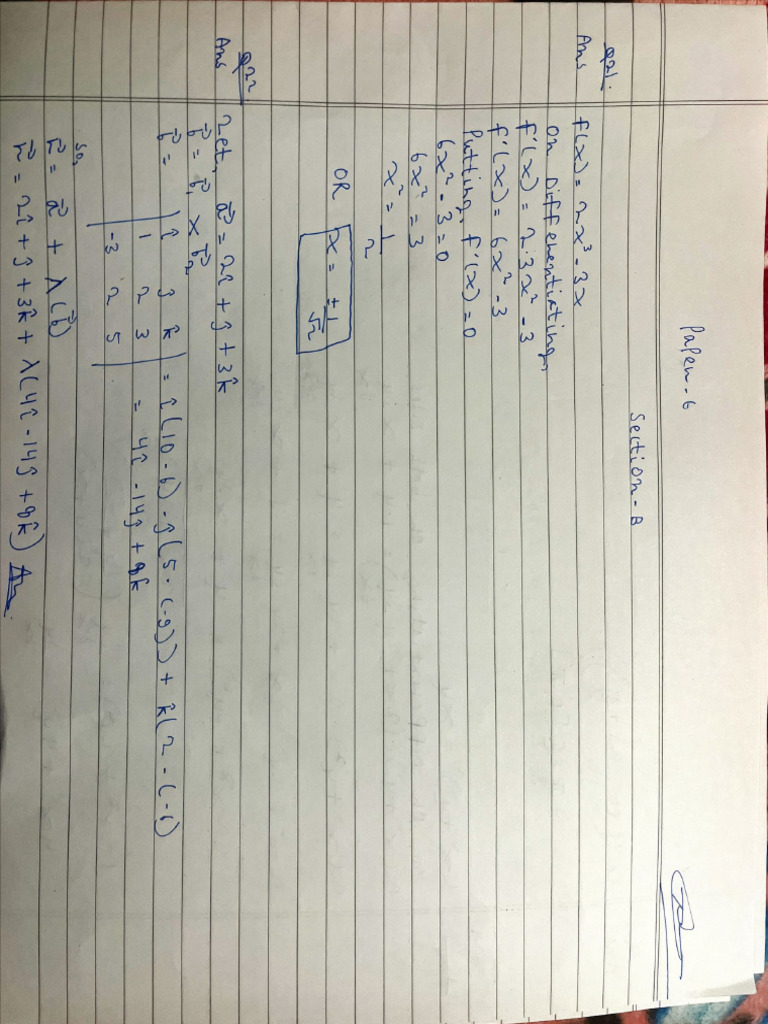 Paper-6
Section-B
Q21.
Ans f(x) = 2x³ - 3x
on Differentiating,
f'(x) = 2·3x² - 3
f'(x) = 6x² - 3
Putting, f'(x) = 0
6x² - 3 = 0
6x² = 3
x² = 1/2
OR x = ±1/√2
Q22
Ans Let, a⃗ = 2î + ĵ + 3k̂
b⃗ = b⃗₁ x b⃗₂
b⃗ = | î ĵ k̂ | = î(10 - 6) - ĵ(5 - (-9)) + k̂(2 - (-6)
| 1 2 3 | = 4î - 14ĵ + 8k̂
| -3 2 5 |
so,
r⃗ = a⃗ + λ(b⃗)
r⃗ = 2î + ĵ + 3k̂ + λ(4î - 14ĵ + 8k̂) Ans